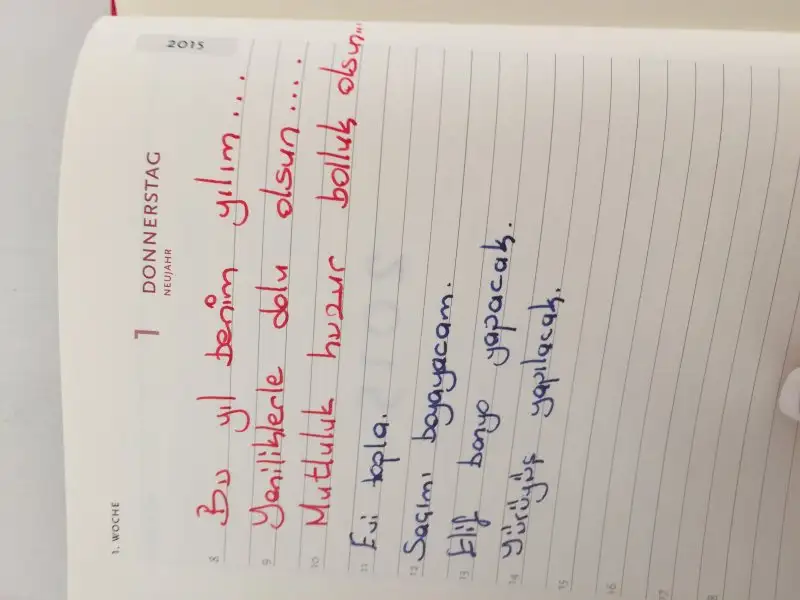 2015
1 DONNERSTAG
NEUJAHR
1. WOCHE
8 Bu yıl benim yılım...
9 Yeniliklerle dolu olsun....
10 Mutluluk huzur bolluk olsun...
11 Evi topla.
12 Saçımı boyayacam.
13 Elif banyo yapacak.
14 Yürüyüş yapılacak.
15
16
17
18